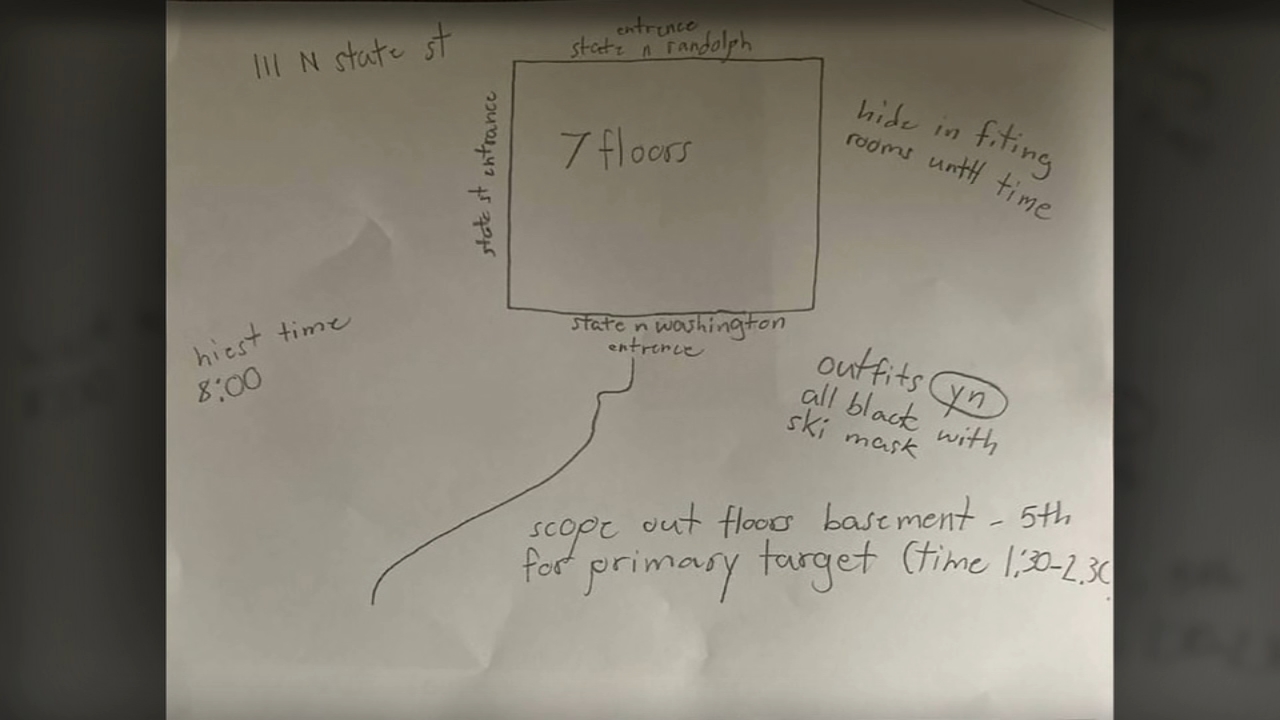 111 N state st
entrence
state n randolph
state st entrance
7 floors
hide in fiting
rooms until time
hiest time
8:00
state n washington
entrence
outfits yn
all black with
ski mask
scope out floors basement - 5th
for primary target (time 1:30-2:30